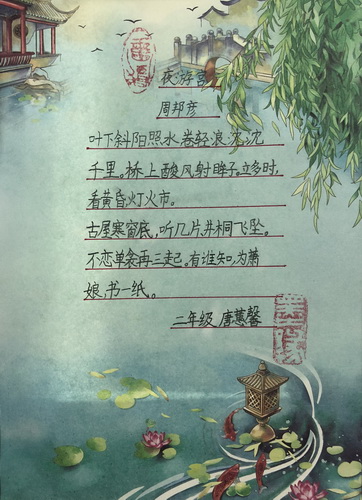 夜游宫
周邦彦
叶下斜阳照水卷轻浪沉沉
千里。桥上酸风射眸子。立多时,
看黄昏灯火市。
古屋寒窗底,听几片井桐飞坠。
不恋单衾再三起。有谁知,为萧
娘,书一纸。
二年级 唐蕙馨